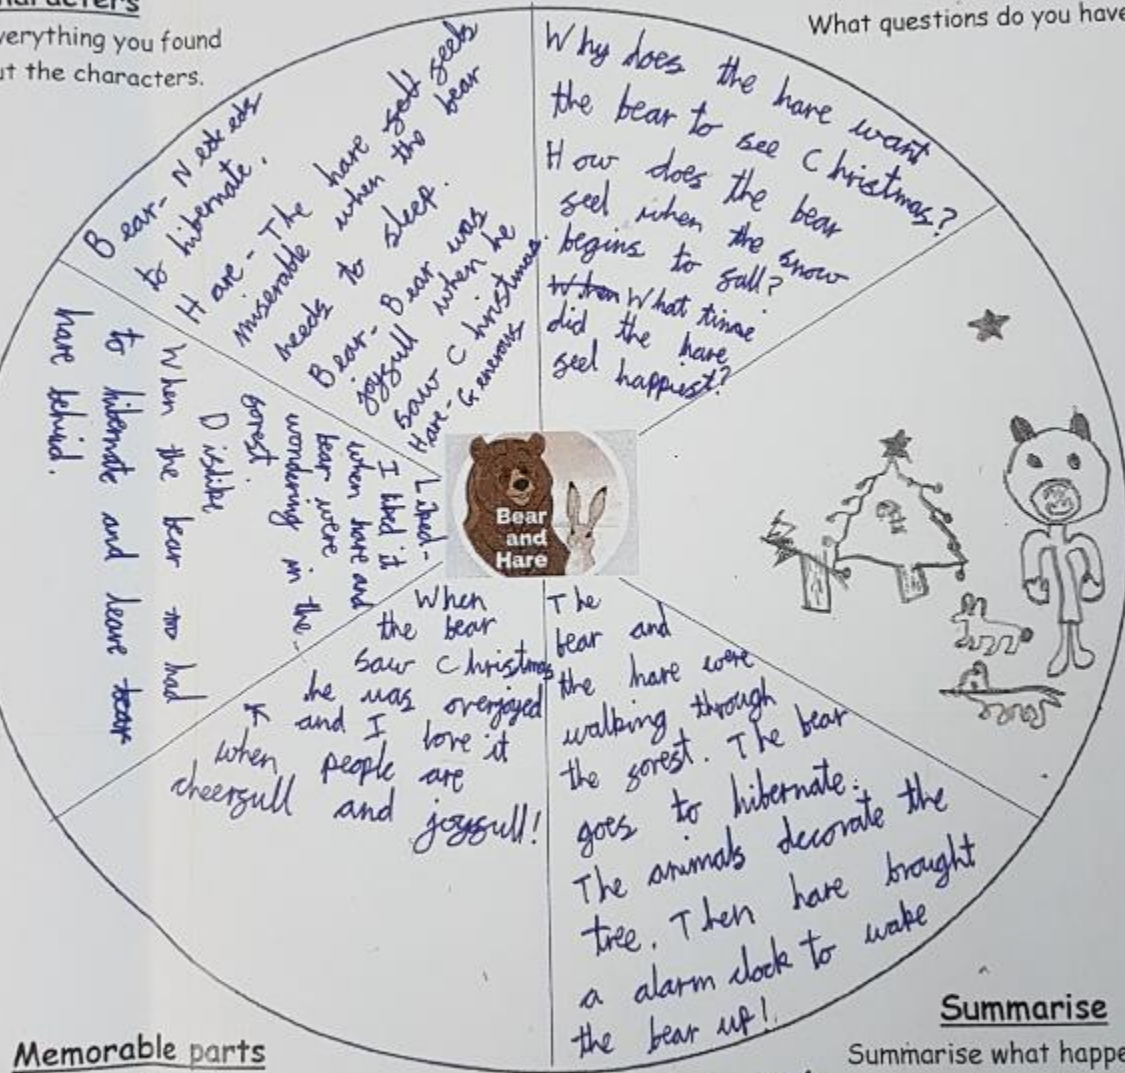 aracters
verything you found
ut the characters.
What questions do you have
Bear - Needs
to hibernate.
Hare - The hare felt feels
miserable when the bear
needs to sleep.
Bear - Bear was
joyfull when he
saw Christmas.
Hare - Generous
Why does the hare want
the bear to see Christmas?
How does the bear
feel when the snow
begins to fall?
When What time
did the hare
feel happiest?
Liked -
I liked it
when hare and
bear were
wondering in the
forest.
Dislike
When the bear had
to hibernate and leave bear
hare behind.
Bear
and
Hare
When
the bear
saw Christmas
he was overjoyed
and I love it
when people are
cheerfull and joyfull!
The
bear and
the hare were
walking through
the forest. The bear
goes to hibernate.
The animals decorate the
tree. Then hare brought
a alarm clock to wake
the bear up!
Memorable parts
Summarise
Summarise what happe